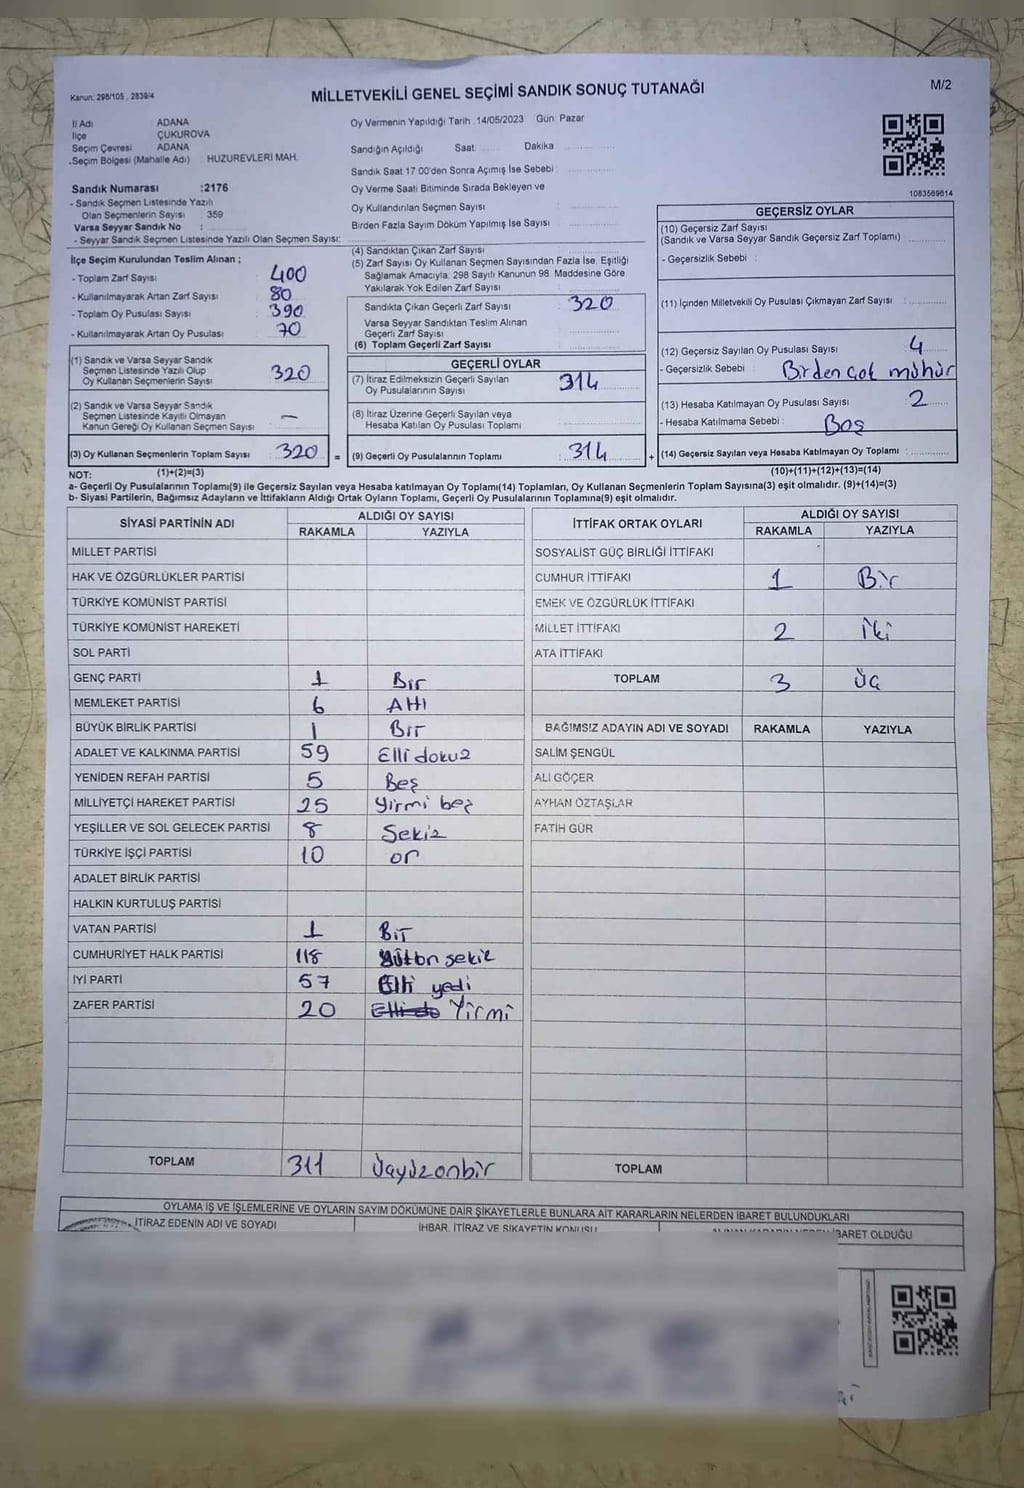 Kanun: 298/105 , 2839/4
MİLLETVEKİLİ GENEL SEÇİMİ SANDIK SONUÇ TUTANAĞI
M/2
İl Adı ADANA
İlçe ÇUKUROVA
Seçim Çevresi ADANA
Seçim Bölgesi (Mahalle Adı) : HUZUREVLERİ MAH.
Sandık Numarası :2176
- Sandık Seçmen Listesinde Yazılı
Olan Seçmenlerin Sayısı : 359
Varsa Seyyar Sandık No :
- Seyyar Sandık Seçmen Listesinde Yazılı Olan Seçmen Sayısı:
İlçe Seçim Kurulundan Teslim Alınan ;
- Toplam Zarf Sayısı 400
- Kullanılmayarak Artan Zarf Sayısı 80
- Toplam Oy Pusulası Sayısı 390
- Kullanılmayarak Artan Oy Pusulası 70
(1) Sandık ve Varsa Seyyar Sandık
Seçmen Listesinde Yazılı Olup
Oy Kullanan Seçmenlerin Sayısı 320
(2) Sandık ve Varsa Seyyar Sandık
Seçmen Listesinde Kayıtlı Olmayan
Kanun Gereği Oy Kullanan Seçmen Sayısı : —
(3) Oy Kullanan Seçmenlerin Toplam Sayısı 320 =
Oy Vermenin Yapıldığı Tarih :14/05/2023 Gün: Pazar
Sandığın Açıldığı Saat: Dakika
Sandık Saat 17:00'den Sonra Açımış İse Sebebi :
Oy Verme Saati Bitiminde Sırada Bekleyen ve
Oy Kullandırılan Seçmen Sayısı :
Birden Fazla Sayım Döküm Yapılmış İse Sayısı :
(4) Sandıktan Çıkan Zarf Sayısı
(5) Zarf Sayısı Oy Kullanan Seçmen Sayısından Fazla İse, Eşitliği
Sağlamak Amacıyla, 298 Sayılı Kanunun 98. Maddesine Göre
Yakılarak Yok Edilen Zarf Sayısı
Sandıkta Çıkan Geçerli Zarf Sayısı 320
Varsa Seyyar Sandıktan Teslim Alınan
Geçerli Zarf Sayısı
(6) Toplam Geçerli Zarf Sayısı
GEÇERLİ OYLAR
(7) İtiraz Edilmeksizin Geçerli Sayılan
Oy Pusulalarının Sayısı 314
(8) İtiraz Üzerine Geçerli Sayılan veya
Hesaba Katılan Oy Pusulası Toplamı
(9) Geçerli Oy Pusulalarının Toplamı 314 +
1083569614
GEÇERSİZ OYLAR
(10) Geçersiz Zarf Sayısı
(Sandık ve Varsa Seyyar Sandık Geçersiz Zarf Toplamı)
- Geçersizlik Sebebi :
(11) İçinden Milletvekili Oy Pusulası Çıkmayan Zarf Sayısı :
(12) Geçersiz Sayılan Oy Pusulası Sayısı 4
- Geçersizlik Sebebi : Birden çok mühür
(13) Hesaba Katılmayan Oy Pusulası Sayısı 2
- Hesaba Katılmama Sebebi : Boş
(14) Geçersiz Sayılan veya Hesaba Katılmayan Oy Toplamı :
NOT: (1)+(2)=(3) (10)+(11)+(12)+(13)=(14)
a- Geçerli Oy Pusulalarının Toplamı(9) ile Geçersiz Sayılan veya Hesaba katılmayan Oy Toplamı(14) Toplamları, Oy Kullanan Seçmenlerin Toplam Sayısına(3) eşit olmalıdır. (9)+(14)=(3)
b- Siyasi Partilerin, Bağımsız Adayların ve İttifakların Aldığı Ortak Oyların Toplamı, Geçerli Oy Pusulalarının Toplamına(9) eşit olmalıdır.
SİYASİ PARTİNİN ADI ALDIĞI OY SAYISI
RAKAMLA YAZIYLA
MİLLET PARTİSİ
HAK VE ÖZGÜRLÜKLER PARTİSİ
TÜRKİYE KOMÜNİST PARTİSİ
TÜRKİYE KOMÜNİST HAREKETİ
SOL PARTİ
GENÇ PARTİ 1 Bir
MEMLEKET PARTİSİ 6 Altı
BÜYÜK BİRLİK PARTİSİ 1 Bir
ADALET VE KALKINMA PARTİSİ 59 Elli dokuz
YENİDEN REFAH PARTİSİ 5 Beş
MİLLİYETÇİ HAREKET PARTİSİ 25 Yirmi beş
YEŞİLLER VE SOL GELECEK PARTİSİ 8 Sekiz
TÜRKİYE İŞÇİ PARTİSİ 10 on
ADALET BİRLİK PARTİSİ
HALKIN KURTULUŞ PARTİSİ
VATAN PARTİSİ 1 Bir
CUMHURİYET HALK PARTİSİ 118 sekiz
İYİ PARTİ 57 Elli yedi
ZAFER PARTİSİ 20 Yirmi
TOPLAM 311 Üçyüzonbir
İTTİFAK ORTAK OYLARI ALDIĞI OY SAYISI
RAKAMLA YAZIYLA
SOSYALİST GÜÇ BİRLİĞİ İTTİFAKI
CUMHUR İTTİFAKI 1 Bir
EMEK VE ÖZGÜRLÜK İTTİFAKI
MİLLET İTTİFAKI 2 İki
ATA İTTİFAKI
TOPLAM 3 Üç
BAĞIMSIZ ADAYIN ADI VE SOYADI RAKAMLA YAZIYLA
SALİM ŞENGÜL
ALİ GÖÇER
AYHAN ÖZTAŞLAR
FATİH GÜR
TOPLAM
OYLAMA İŞ VE İŞLEMLERİNE VE OYLARIN SAYIM DÖKÜMÜNE DAİR ŞİKAYETLERLE BUNLARA AİT KARARLARIN NELERDEN İBARET BULUNDUKLARI
İTİRAZ EDENİN ADI VE SOYADI İHBAR, İTİRAZ VE ŞİKAYETİN KONUSU İBARET OLDUĞU